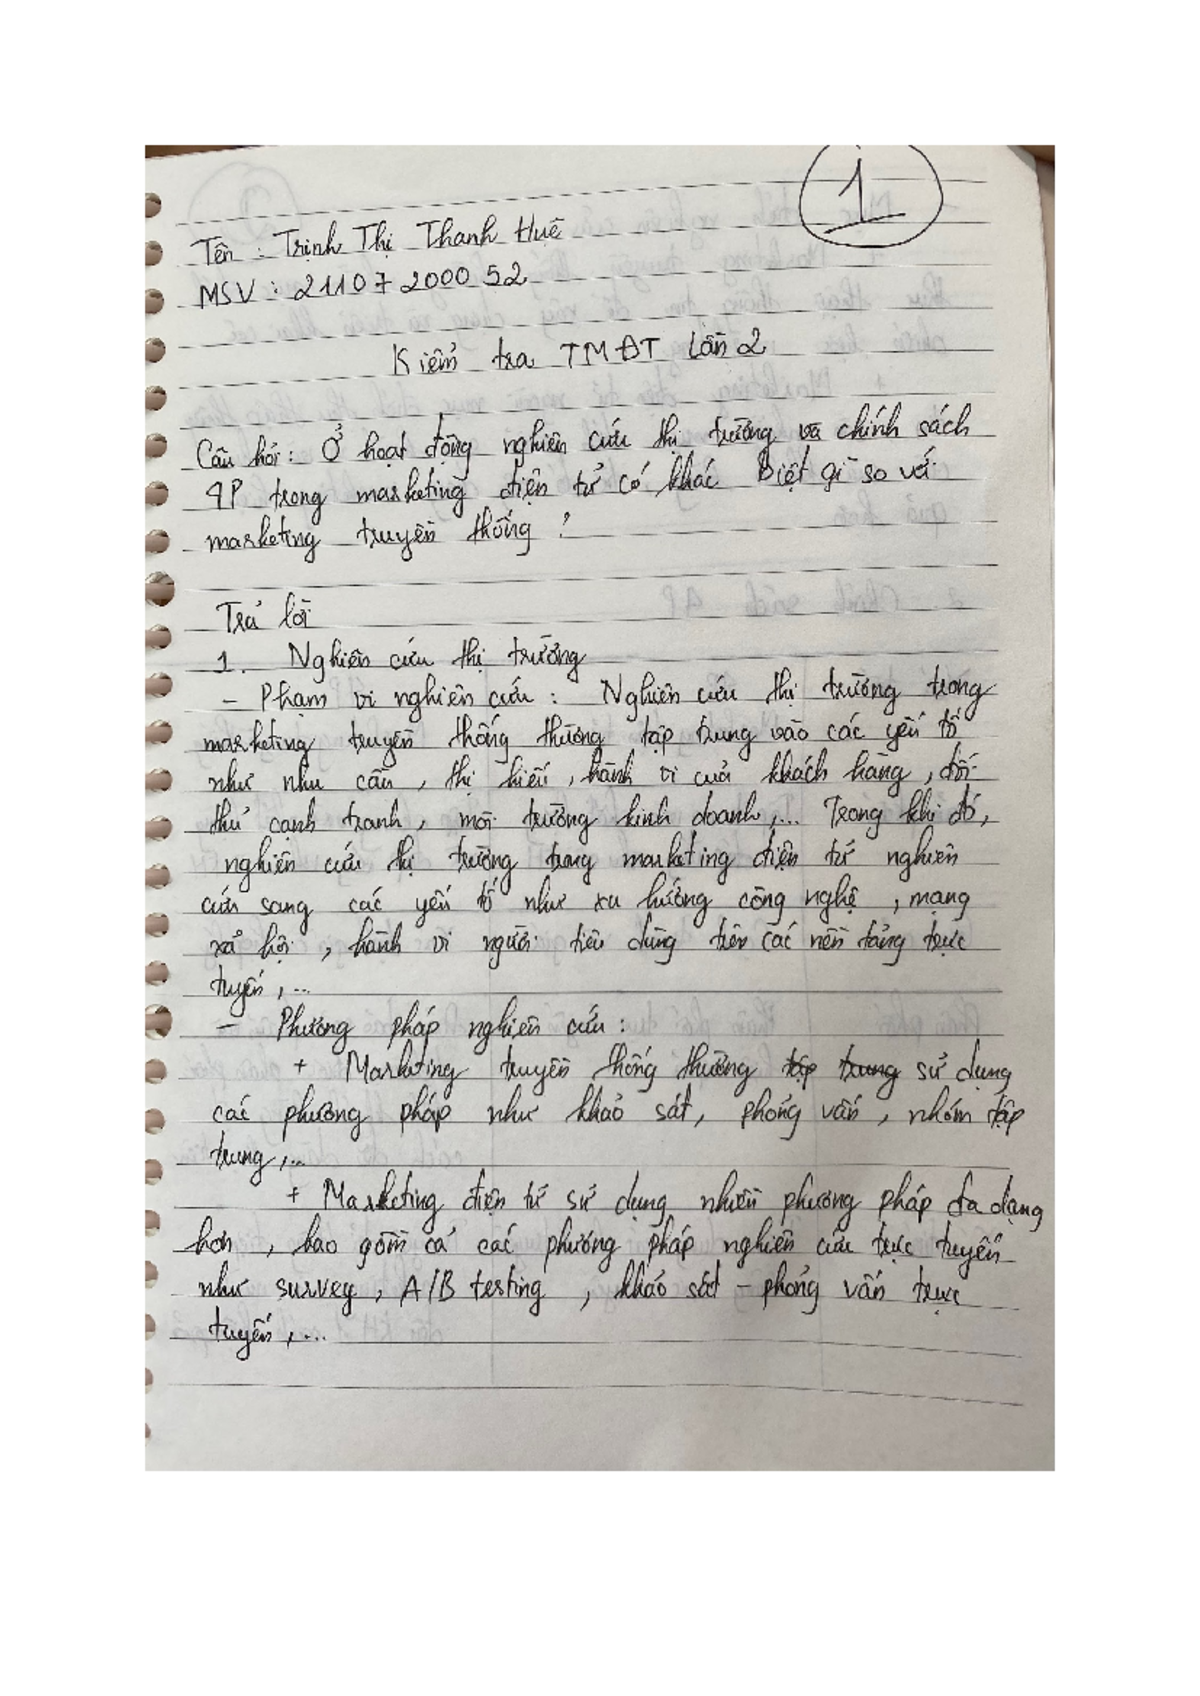 1
Tên : Trịnh Thị Thanh Huê
MSV : 2110 7 2000 52
Kiểm tra TMĐT lần 2
Câu hỏi : Ở hoạt động nghiên cứu thị trường và chính sách
4P trong marketing điện tử có khác biệt gì so với
marketing truyền thống ?
Trả lời
1. Nghiên cứu thị trường
- Phạm vi nghiên cứu : Nghiên cứu thị trường trong
marketing truyền thống thường tập trung vào các yếu tố
như nhu cầu , thị hiếu , hành vi của khách hàng , đối
thủ cạnh tranh , môi trường kinh doanh ,... Trong khi đó,
nghiên cứu thị trường trong marketing điện tử nghiên
cứu sang các yếu tố như xu hướng công nghệ , mạng
xã hội , hành vi người tiêu dùng trên các nền tảng trực
tuyến , ...
- Phương pháp nghiên cứu :
+ Marketing truyền thống thường tập trung sử dụng
các phương pháp như khảo sát, phỏng vấn , nhóm tập
trung ,...
+ Marketing điện tử sử dụng nhiều phương pháp đa dạng
hơn , bao gồm cả các phương pháp nghiên cứu trực tuyến
như survey , A/B testing , khảo sát - phỏng vấn trực
tuyến , ...